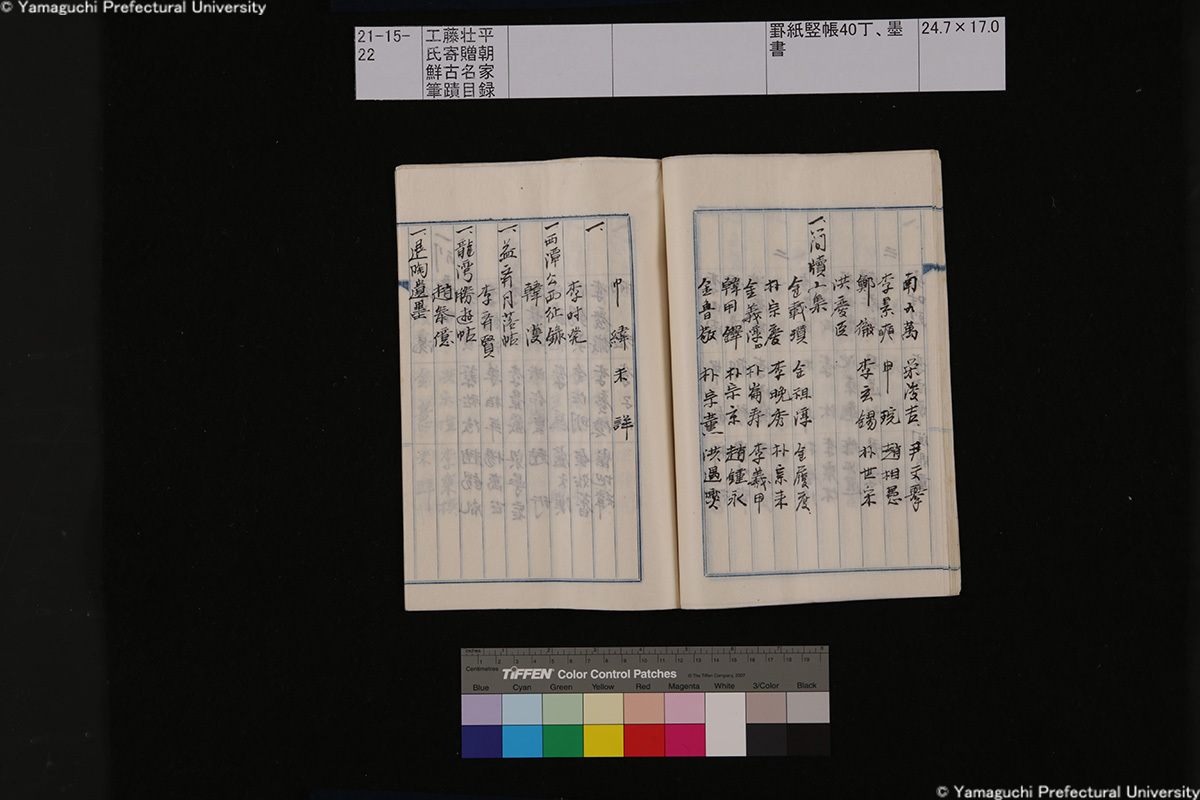 © Yamaguchi Prefectural University
21-15-22
工藤壮平
氏寄贈朝
鮮古名家
筆蹟目録
罫紙竪帳40丁、墨
書
24.7×17.0
南九萬 尹文擧
李景奭 申琓 趙相愚
鄭澈 李玄錫 朴世采
洪慶臣
一、簡牘二集
金載瓚 金祖淳 金履度
朴宗慶 李晩秀 朴宗来
金羲淳 朴崙壽 李羲甲
韓用鐸 朴宗京 趙鍾永
金魯敬 朴宗薫 洪遇燮
申緯 未詳
一、
李時発
一、西潭公西征録
韓濩
一、益齋月落帖
李齊賢
一、龍湾勝遊帖
趙泰億
一、退陶遺墨
Centimetres
TIFFEN Color Control Patches
© The Tiffen Company, 2007
Blue Cyan Green Yellow Red Magenta White 3/Color Black
© Yamaguchi Prefectural University